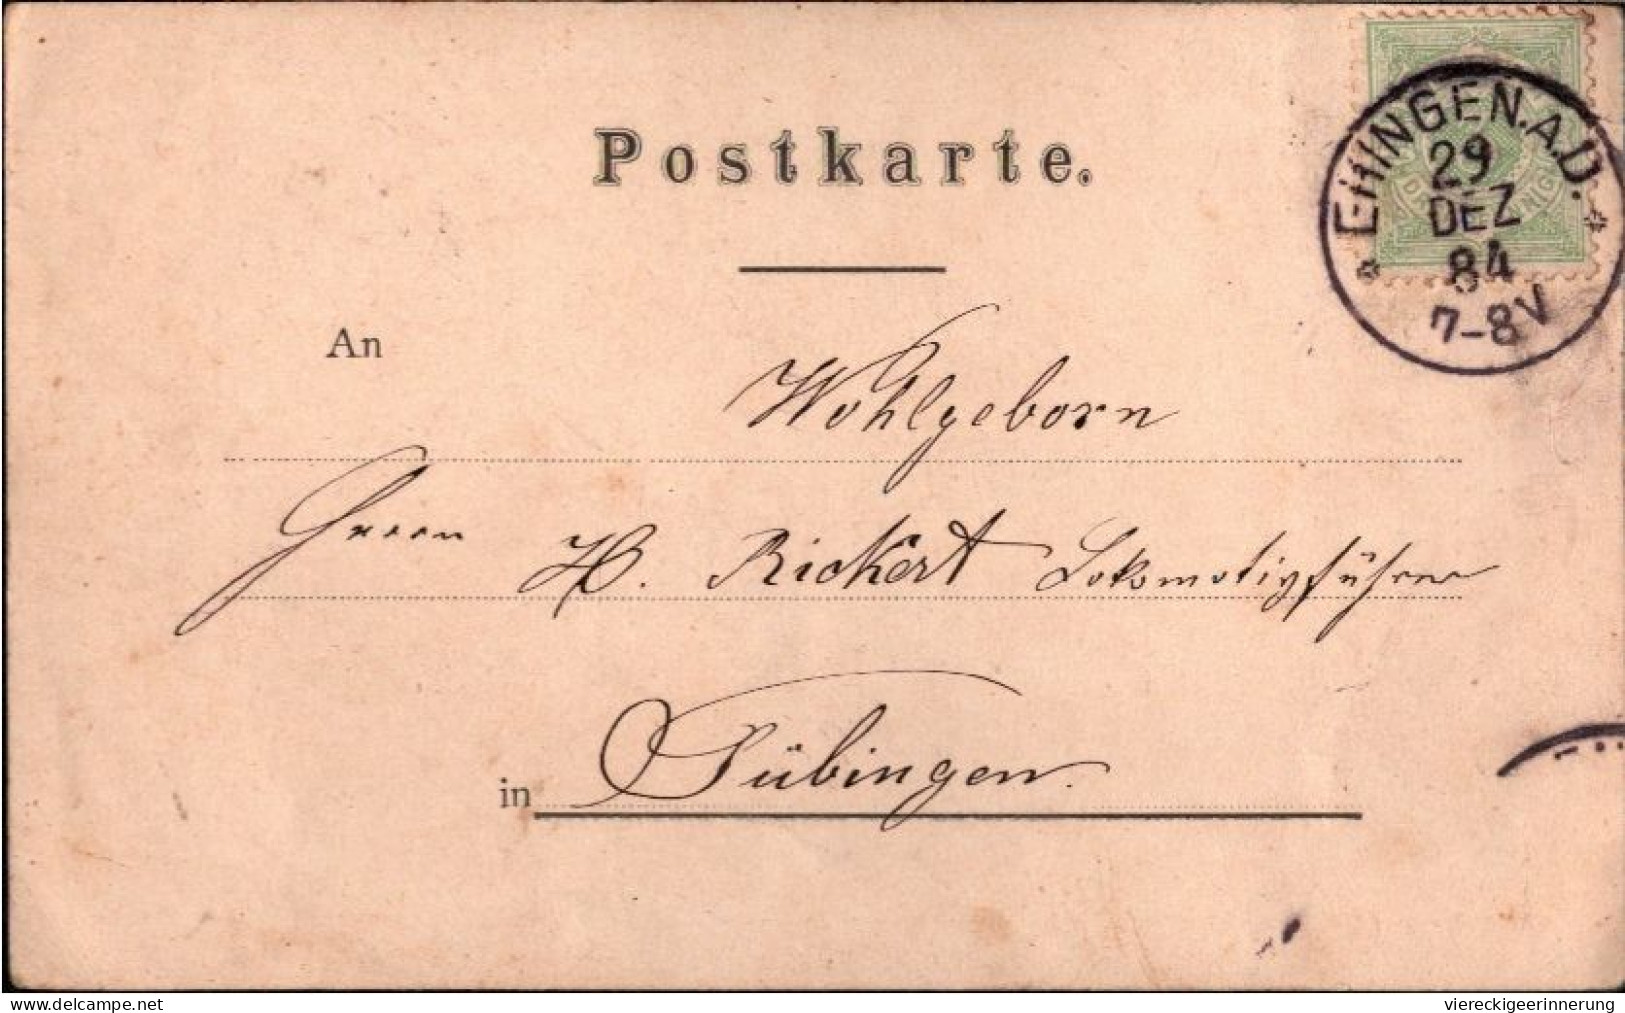 Postkarte.
EHINGEN.A.D.
29
DEZ
84
7-8V
An
Wohlgeborn
Herrn H. Rickert Lokomotivführer
in Tübingen.
www.delcampe.net
viereckigeerinnerung